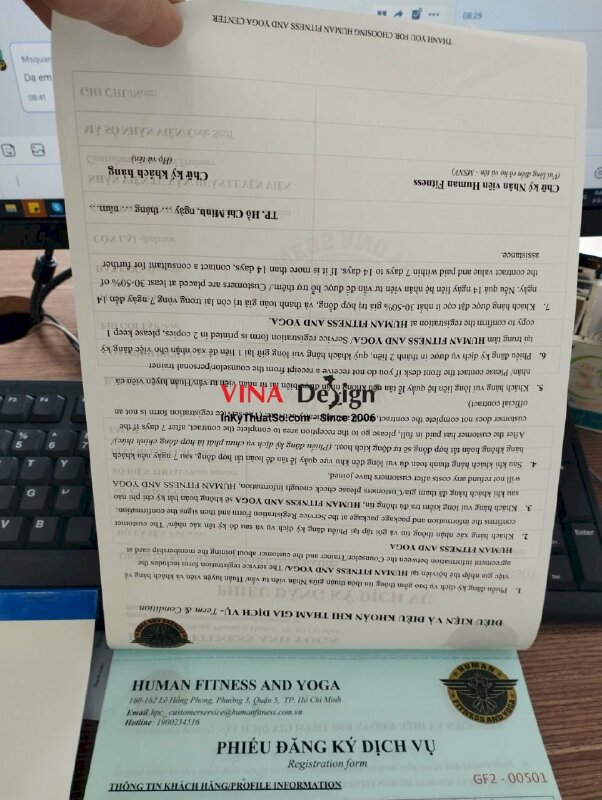 08:29
Msquare
Dạ em
08:41
THANK YOU FOR CHOOSING HUMAN FITNESS AND YOGA CENTER
GHI CHÚ/Note:
MÃ SỐ NHÂN VIÊN/Code Staff
Chữ ký Nhân viên Human Fitness
(Vui lòng điền rõ họ và tên - MSNV)
Chữ ký khách hàng
(Họ và tên)
TP. Hồ Chí Minh, ngày ... tháng ... năm ...
CÒN LẠI/Balance
ĐIỀU KIỆN VÀ ĐIỀU KHOẢN KHI THAM GIA DỊCH VỤ - Term & Condition
1. Phiếu đăng ký dịch vụ bao gồm thông tin thỏa thuận giữa Nhân viên tư vấn/ Huấn luyện viên và khách hàng về
việc gia nhập thẻ hội viên tại HUMAN FITNESS AND YOGA/ The service registration form includes the
agreement information between the Counselor/Trainer and the customer about joining the membership card at
HUMAN FITNESS AND YOGA.
2. Khách hàng xác nhận thông tin và gói tập tại Phiếu đăng ký dịch vụ và sau đó ký tên xác nhận/ The customer
confirms the information and package package at the Service Registration Form and then signs the confirmation.
3. Khách hàng vui lòng kiểm tra đủ thông tin, HUMAN FITNESS AND YOGA sẽ không hoàn bất kỳ chi phí nào
sau khi khách hàng đã tham gia/Customers please check enough information, HUMAN FITNESS AND YOGA
will not refund any costs after customers have joined.
4. Sau khi khách hàng thanh toán đủ vui lòng đến khu vực quầy lễ tân để hoàn tất hợp đồng, sau 7 ngày nếu khách
hàng không hoàn tất hợp đồng sẽ tự động kích hoạt. (Phiếu đăng ký dịch vụ không phải là hợp đồng chính thức)/
After the customer has paid in full, please go to the reception area to complete the contract, after 7 days if the
customer does not complete the contract, service registration form is not an
official contract).
5. Khách hàng vui lòng liên hệ quầy lễ tân nếu không nhận được biên lai từ nhân viên tư vấn/Huấn luyện viên cá
nhân/ Please contact the front desk if you do not receive a receipt from the counselor/personal trainer
6. Phiếu đăng ký dịch vụ được in thành 2 liên, quý khách hàng vui lòng giữ lại 1 liên để xác nhận cho việc đăng ký
tại trung tâm HUMAN FITNESS AND YOGA/ Service registration form is printed in 2 copies, please keep 1
copy to confirm the registration at HUMAN FITNESS AND YOGA.
7. Khách hàng được đặt cọc ít nhất 30-50% giá trị hợp đồng, và thanh toán toàn giá trị còn lại trong vòng 7 ngày đến 14
ngày. Nếu quá 14 ngày liên hệ nhân viên tư vấn để được hỗ trợ thêm/ Customers are placed at least 30-50% of
the contract value and paid within 7 days to 14 days. If it is more than 14 days, contact a consultant for further
assistance.
VINA Design
InKyThuatSo.com - Since 2006
HUMAN FITNESS AND YOGA
160-162 Lê Hồng Phong, Phường 3, Quận 5, TP. Hồ Chí Minh
Email: hpc_customerservice@humanfitness.com.vn
Hotline: 1900234516
HUMAN
FITNESS AND YOGA
PHIẾU ĐĂNG KÝ DỊCH VỤ
Registration form
GF2 - 00501
THÔNG TIN KHÁCH HÀNG/PROFILE INFORMATION